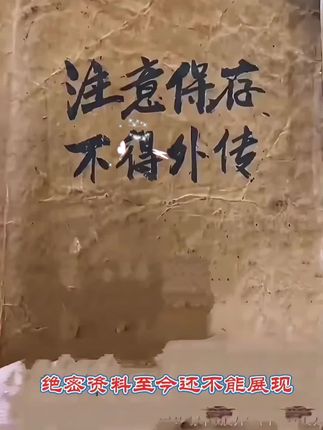 注意保存
不得外传
绝密资料至今还不能展现